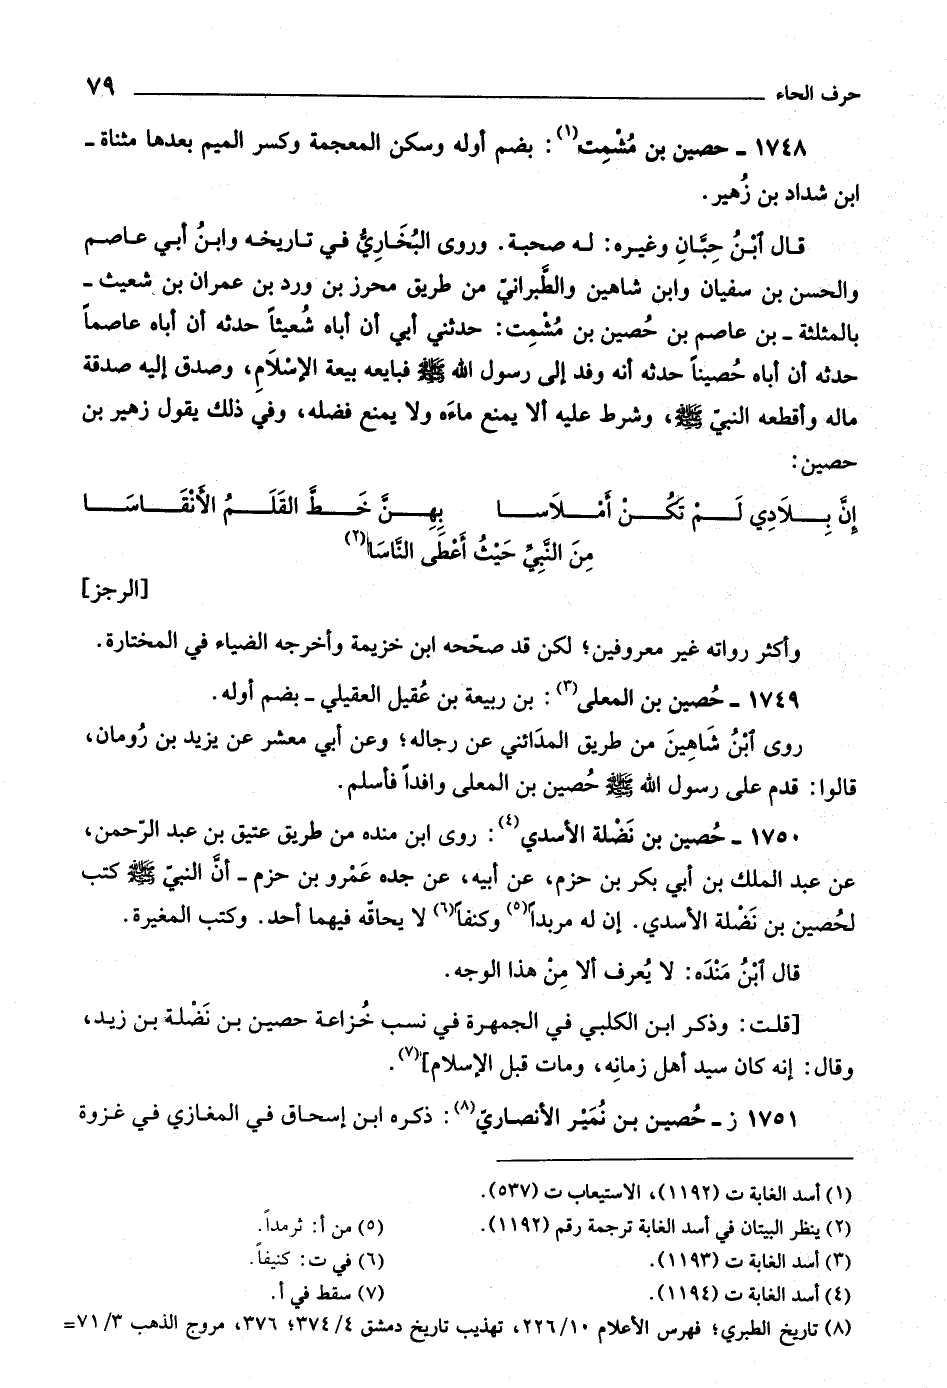 حرف الحاء ٧٩
١٧٤٨ ـ حصين بن مُشْمِت(١): بضم أوله وسكن المعجمة وكسر الميم بعدها مثناة ـ
ابن شداد بن زُهير.
قال ٱبْنُ حِبَّانِ وغيره: له صحبة. وروى البُخَارِيُّ في تاريخه وابنُ أبي عاصم
والحسن بن سفيان وابن شاهين والطَّبرانيّ من طريق محرز بن ورد بن عمران بن شعيث ـ
بالمثلثة ـ بن عاصم بن حُصين بن مُشْمِت: حدثني أبي أن أباه شُعيثاً حدثه أن أباه عاصماً
حدثه أن أباه حُصيناً حدثه أنه وفد إلى رسول الله ﷺ فبايعه بيعة الإسْلَامِ، وصدق إليه صدقة
ماله وأقطعه النبيّ ﷺ، وشرط عليه ألا يمنع ماءَه ولا يمنع فضله، وفي ذلك يقول زهير بن
حصين:
إِنَّ بِـلَادِي لَـمْ تَكُـنْ أَمْـلَاسـا بِهِـنَّ خَـطَّ القَلَـمُ الأَنْقَـاسَـا
مِنَ النَّبِيِّ حَيْثُ أَعْطَى النَّاسَا(٢)
[الرجز]
وأكثر رواته غير معروفين؛ لكن قد صحّحه ابن خزيمة وأخرجه الضياء في المختارة.
١٧٤٩ ـ حُصين بن المعلى(٣): بن ربيعة بن عُقيل العقيلي ـ بضم أوله.
روى ٱبْنُ شَاهِينَ من طريق المدَائني عن رجاله؛ وعن أبي معشر عن يزيد بن رُومان،
قالوا: قدم على رسول الله ﷺ حُصين بن المعلى وافداً فأسلم.
١٧٥٠ ـ حُصين بن نَضْلة الأسدي(٤): روى ابن منده من طريق عتيق بن عبد الرّحمن،
عن عبد الملك بن أبي بكر بن حزم، عن أبيه، عن جده عَمْرو بن حزم ـ أنَّ النبيّ ﷺ كتب
لحُصين بن نَضْلة الأسدي. إن له مربداً(٥) وكنفاً(٦) لا يحاقّه فيهما أحد. وكتب المغيرة.
قال ٱبْنُ مَنْدَه: لا يُعرف ألا مِنْ هذا الوجه.
[قلت: وذكر ابن الكلبي في الجمهرة في نسب خُزاعة حصين بن نَضْلة بن زيد،
وقال: إنه كان سيد أهل زمانِه، ومات قبل الإسلام](٧).
١٧٥١ ز ـ حُصين بن نُمَيْر الأنصاريّ(٨): ذكره ابن إسحاق في المغازي في غزوة
(١) أسد الغابة ت (١١٩٢)، الاستيعاب ت (٥٣٧).
(٢) ينظر البيتان في أسد الغابة ترجمة رقم (١١٩٢). (٥) من أ: ثرمداً.
(٣) أسد الغابة ت (١١٩٣). (٦) في ت: كنيفاً.
(٤) أسد الغابة ت (١١٩٤). (٧) سقط في أ.
(٨) تاريخ الطبري؛ فهرس الأعلام ١٠/ ٢٢٦، تهذيب تاريخ دمشق ٤/ ٣٧٤؛ ٣٧٦، مروج الذهب ٣/ ٧١=